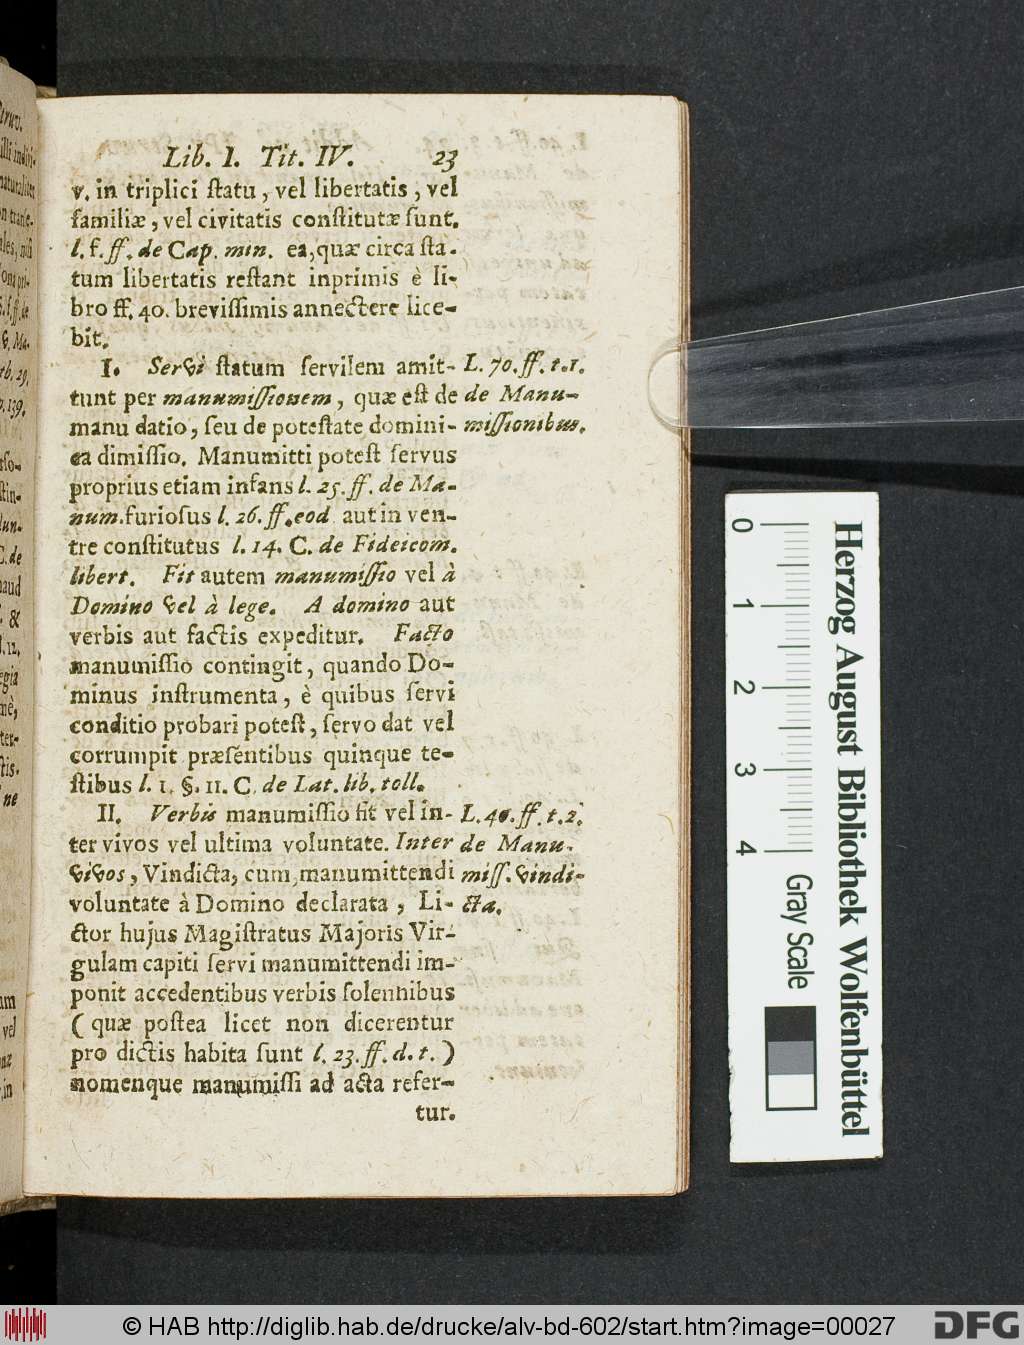 Lib. I. Tit. IV. 23
v. in triplici ſtatu, vel libertatis, vel
familiæ, vel civitatis conſtitutæ ſunt.
l. f. ff. de Cap. min. ea, quæ circa ſta-
tum libertatis reſtant inprimis è li-
bro ff. 40. breviſſimis annectere lice-
bit.
I. Servi ſtatum ſervilem amit-
tunt per manumiſſionem, quæ eſt de
manu datio, ſeu de poteſtate domini-
ca dimiſſio. Manumitti poteſt ſervus
proprius etiam infans l. 25. ff. de Ma-
num. furioſus l. 26. ff. eod aut in ven-
tre conſtitutus l. 14. C. de Fideicom.
libert. Fit autem manumiſſio vel à
Domino vel à lege. A domino aut
verbis aut factis expeditur. Facto
manumiſſio contingit, quando Do-
minus inſtrumenta, è quibus ſervi
conditio probari poteſt, ſervo dat vel
corrumpit præſentibus quinque te-
ſtibus l. 1. §. 11. C. de Lat. lib. toll.
II. Verbis manumiſſio fit vel in-
ter vivos vel ultima voluntate. Inter
vivos, Vindicta, cum manumittendi
voluntate à Domino declarata, Li-
ctor hujus Magiſtratus Majoris Vir-
gulam capiti ſervi manumittendi im-
ponit accedentibus verbis ſolennibus
( quæ poſtea licet non dicerentur
pro dictis habita ſunt l. 23. ff. d. t. )
nomenque manumiſſi ad acta refer-
tur.
L. 70. ff. t. 1.
de Manu-
miſſionibus.
L. 40. ff. t. 2.
de Manu-
miſſ. vindi-
cta.
0 1 2 3 4
Gray Scale
Herzog August Bibliothek Wolfenbüttel
© HAB http://diglib.hab.de/drucke/alv-bd-602/start.htm?image=00027
DFG